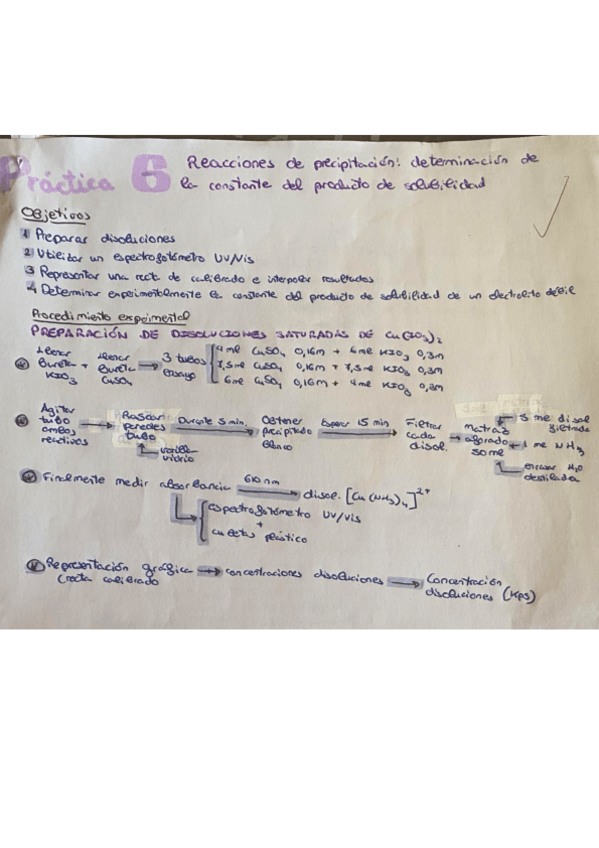 Práctica 6 Reacciones de precipitación: determinación de
la constante del producto de solubilidad
Objetivos
1 Preparar disoluciones
2 Utilizar un espectrofotómetro UV/Vis
3 Representar una recta de calibrado e interpolar resultados
4 Determinar experimentalmente la constante del producto de solubilidad de un electrolito débil
Procedimiento experimental
PREPARACIÓN DE DISOLUCIONES SATURADAS DE Cu(IO3)2
Llenar Bureta KIO3 + Llenar Bureta CuSO4 → 3 tubos ensayo
4 ml CuSO4 0,16M + 6 ml KIO3 0,3M
7,5 ml CuSO4 0,16M + 7,5 ml KIO3 0,3M
6 ml CuSO4 0,16M + 4 ml KIO3 0,3M
Agitar tubo ambos reactivos → Rascar paredes tubo
varilla vidrio
Durante 5 min. → Obtener precipitado blanco
Esperar 15 min → Filtrar cada disol. → matraz aforado 50 ml
5 ml disol filtrada
1 ml NH3
enrasar H2O destilada
Finalmente medir absorbancia 610 nm → disol. [Cu(NH3)4]2+
espectrofotómetro UV/Vis
+
cubetas plástico
Representación gráfica → concentraciones disoluciones → Concentración
(recta calibrado disoluciones (Kps)